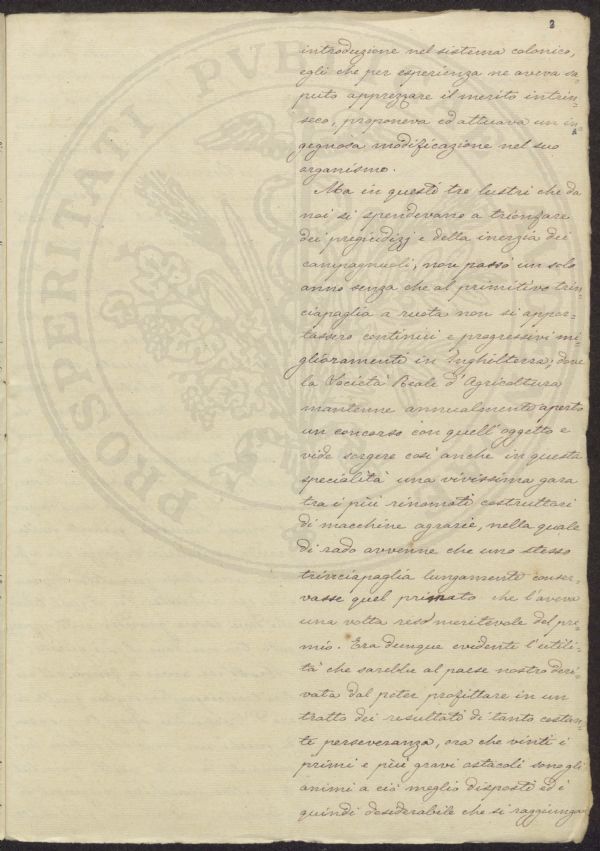 2
introduzione nel sistema colonico,
egli che per esperienza ne aveva sa-
puto apprezzare il merito intrin-
seco, proponeva ed attuava un in-
gegnosa modificazione nel suo
organismo.
Ma in questi tre lustri che da
noi si spendevano a trionfare
dei pregiudizj e della inerzia dei
campagnuoli, non passò un solo
anno senza che al primitivo trin-
ciapaglia a ruota non si appor-
tassero continui e progressivi mi-
glioramenti in Inghilterra, dove
la Società Reale d'Agricoltura
mantenne annualmente aperto
un concorso con quell'oggetto e
vide sorgere così anche in questa
specialità una vivissima gara
tra i più rinomati costruttori
di macchine agrarie, nella quale
di rado avvenne che uno stesso
trinciapaglia lungamente conser-
vasse quel primato che l'aveva
una volta reso meritevole del pre-
mio. Era dunque evidente l'utili-
tà che sarebbe al paese nostro deri-
vata dal poter profittare in un
tratto dei resultati di tanto costan-
te perseveranza, ora che vinti i
primi e più gravi ostacoli sono gli
animi a ciò meglio disposti ed è
quindi desiderabile che si raggiunga
PROSPERITATI PVBL